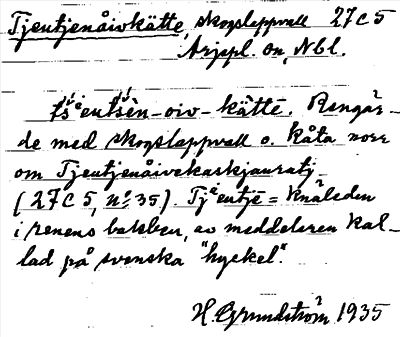 Tjeutjenåivkätte, skogslappvall 27C5
Arjepl. sn, Nbl.
Rengär-
de med skogslappvall o. kåta norr
om Tjeutjenåivekaskjauratj
(27C5, n:o 35). Tjeutjē = knäleden
i renens bakben, av meddelaren kal-
lad på svenska "hyckel".
H. Grundström 1935